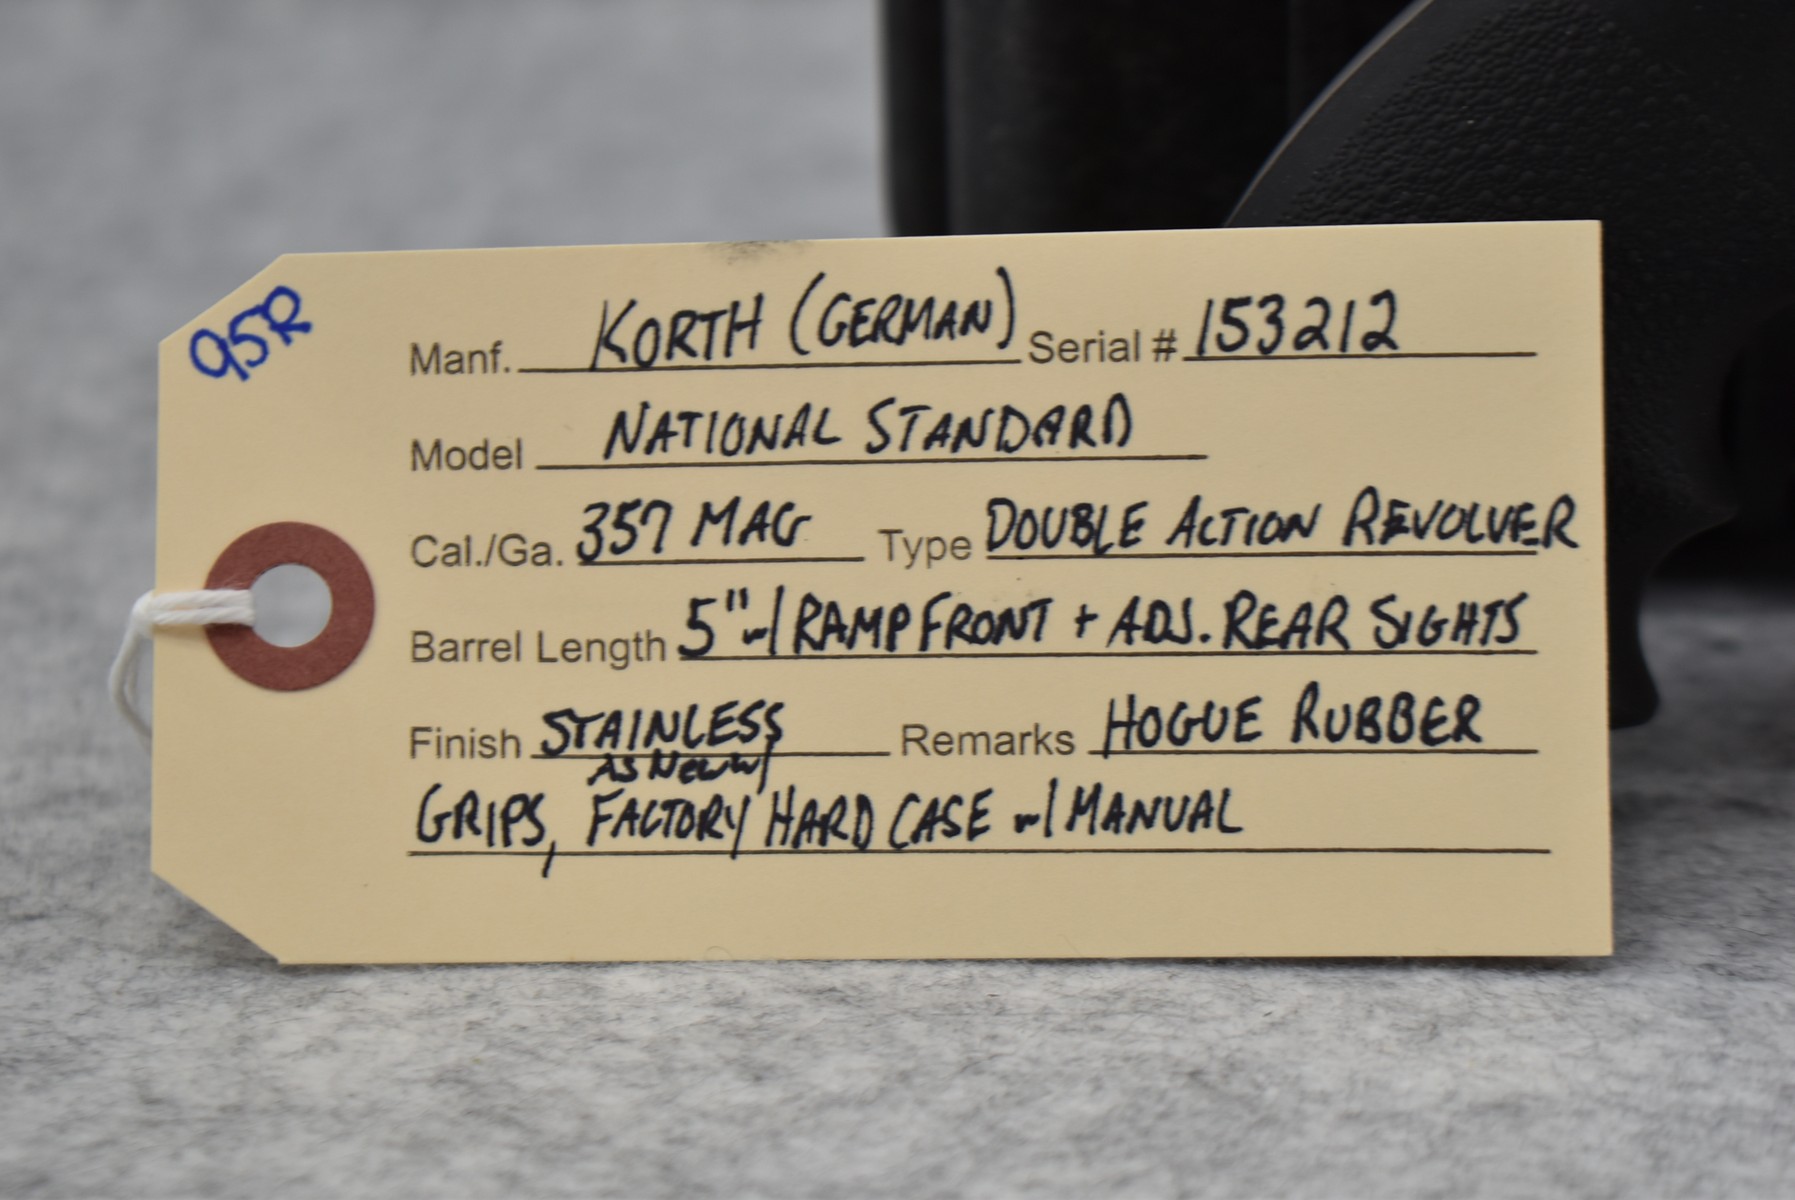 95R
Manf. KORTH (GERMAN) Serial # 153212
Model NATIONAL STANDARD
Cal./Ga. 357 MAG Type DOUBLE ACTION REVOLVER
Barrel Length 5" w/ RAMP FRONT + ADJ. REAR SIGHTS
Finish STAINLESS Remarks HOGUE RUBBER
AS NEW w/
GRIPS, FACTORY HARD CASE w/ MANUAL